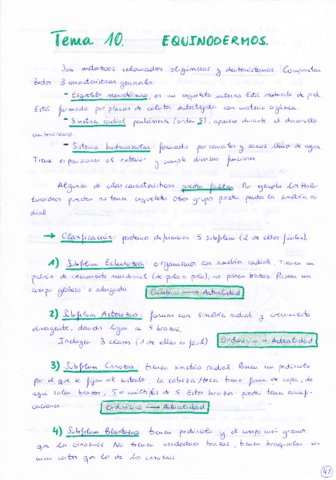 Tema 10. EQUINODERMOS.
Son metazoos celomados oligómeros y deuteróstomos. Comparten
todos 3 características generales:
- Esqueleto mesodérmico, es un esqueleto interno. Está recubierto de piel.
Está formado por placas de calcita entretejida con materia orgánica.
- Simetría radial pentámera (orden 5), aparece durante el desarrollo
embrionario.
- Sistema hidrovascular formado por canales y sacos llenos de agua.
Tiene expansiones al exterior y cumple diversas funciones.
Algunas de estas características pueden faltar. Por ejemplo los Holo-
turoideos pueden no tener esqueleto. Otro grupo puede perder la simetría ra-
dial.
→ Clasificación: podemos diferenciar 5 subfilum (1 de ellos fósiles).
1) Subfilum Echinozoa: organismos con simetría radial. Tienen un
patrón de crecimiento meridional (de polo a polo), no poseen brazos. Poseen un
cuerpo globoso o alargado. Cámbrico → Actualidad
2) Subfilum Asterozoa: forman con simetría radial y crecimiento
divergente, dando lugar a 5 brazos.
Incluyen 3 clases (1 de ellas es fósil). Ordovícico → Actualidad.
3) Subfilum Crinozoa: tienen simetría radial. Poseen un pedúnculo
por el que se fijan al sustrato, la cabeza/teca tiene forma de copa, de
aquí salen brazos, 5 o múltiplos de 5. Estos brazos puede tener
caciones. Ordovícico → Actualidad
4) Subfilum Blastozoa: tienen pedúnculo y el cuerpo más grande
que los crinozoos. No tienen verdaderos brazos, tienen braquiolas, son
más cortos que los de los crinozoos.